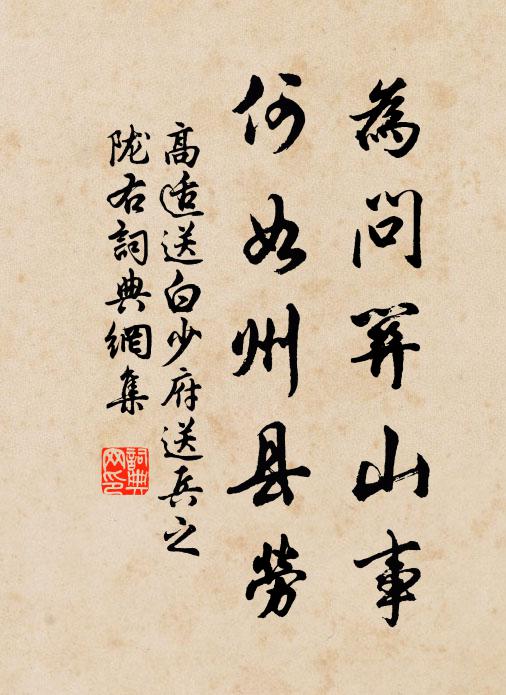 為問關山事
何如州县勞
高适送白少府送兵之
陇右詞典網集
詞典
网印